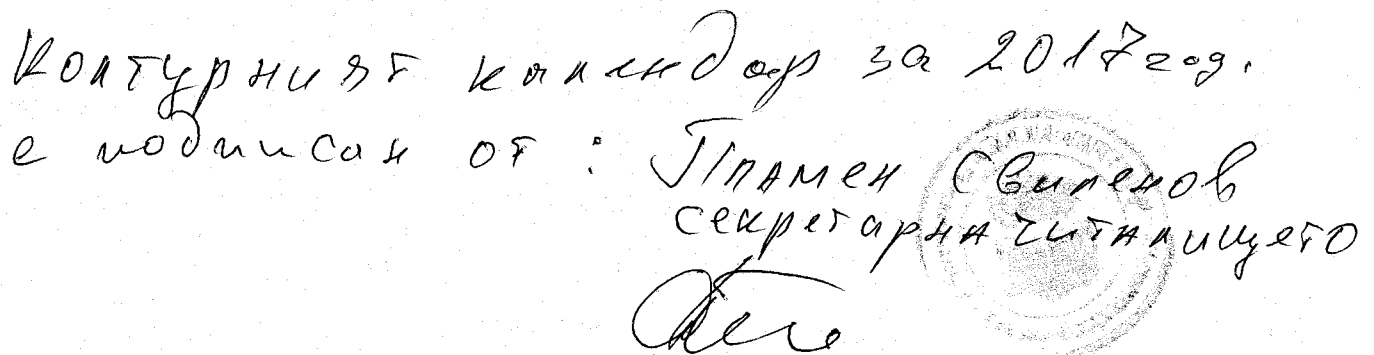 Колтурният календар за 2017 год.
е подписан от: Пламен Свиленов
секретар на читалището